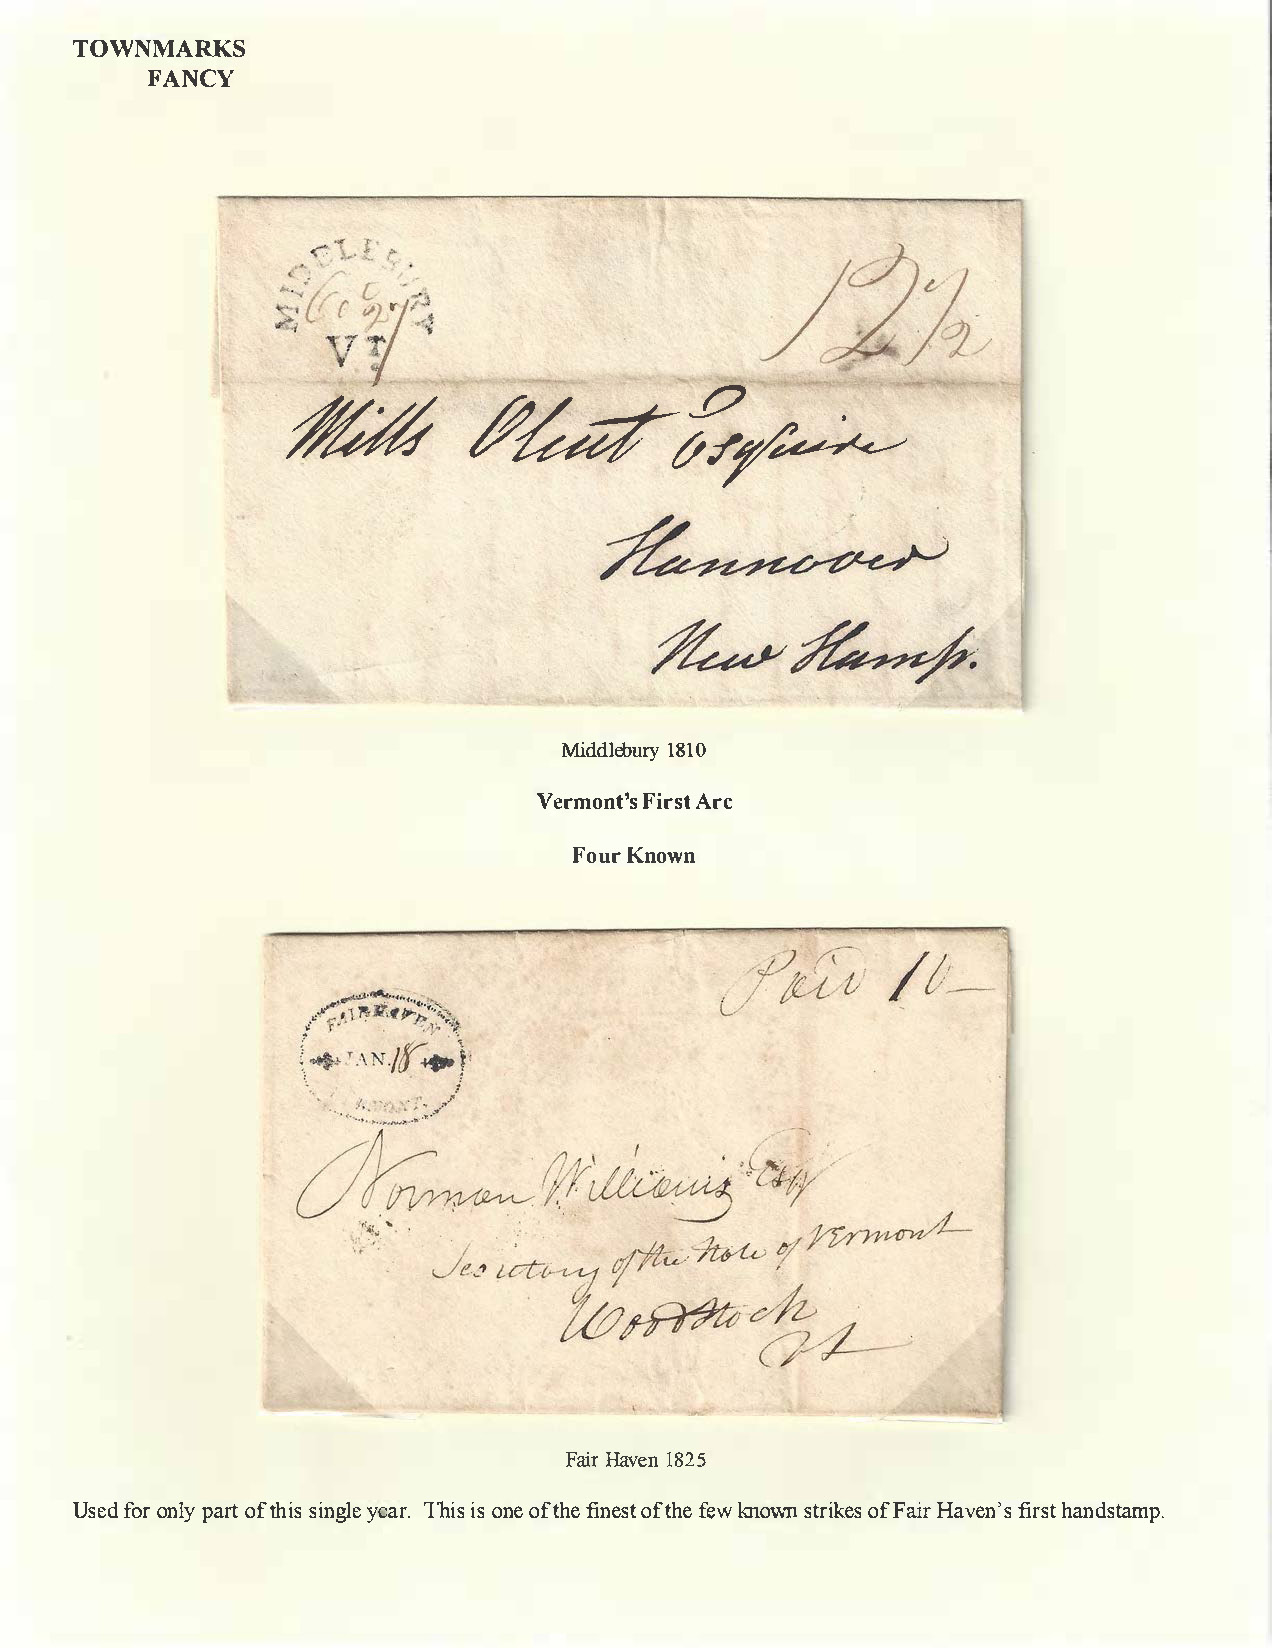 TOWNMARKS
FANCY
MIDDLEBURY
Oc 27
VT.
12 1/2
Mills Olcut Esquire
Hannover
New Hamp.
Middlebury 1810
Vermont's First Arc
Four Known
Paid 10
FAIRHAVEN
JAN. 18
RMONT.
Norman Williams Esq
Secretary of the State of Vermont
Woodstock
Vt
Fair Haven 1825
Used for only part of this single year. This is one of the finest of the few known strikes of Fair Haven's first handstamp.